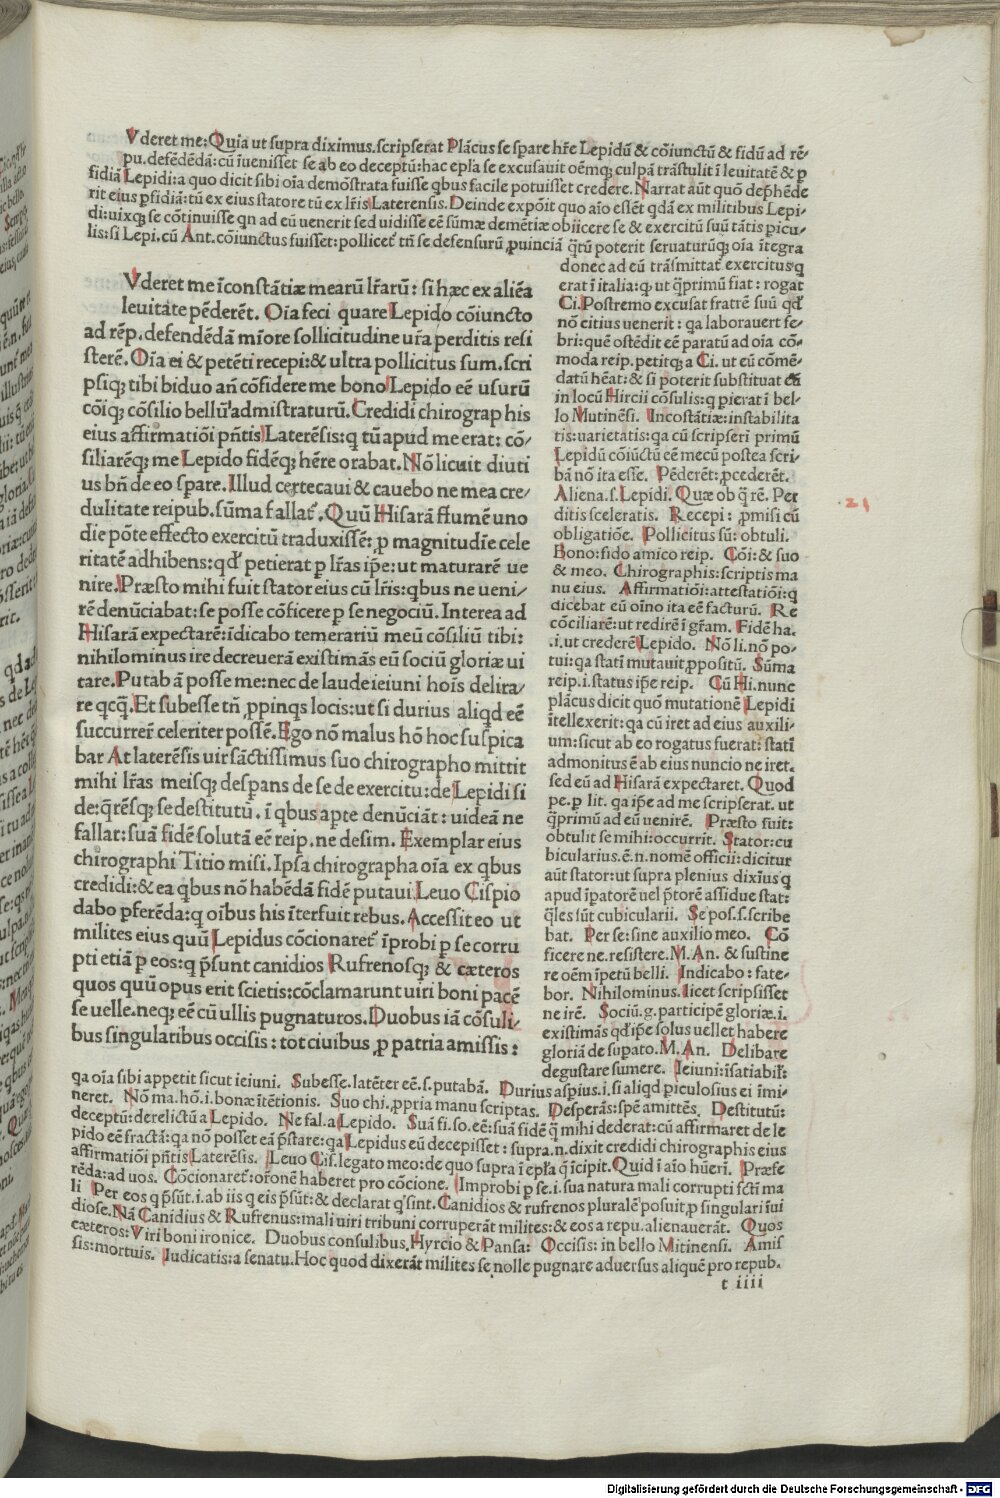 Vderet me: Quia ut supra diximus. scripserat Plãcus se spare hr̃e Lepidũ & cõiunctũ & fidũ ad rẽ-
pu. defẽdẽdã: cũ ĩuenisset se ab eo deceptũ: hac epl̃a se excusauit oẽmq; culpã trãstulit ĩ leuitatẽ & p
fidiã Lepidi: a quo dicit sibi oĩa demõstrata fuisse qbus facile potuisset credere. Narrat aũt quõ dephẽde
rit eius pfidiã: tũ ex eius statore tũ ex lr̃is Laterensis. Deinde expõit quo aĩo essẽt qdã ex militibus Lepi-
di: uixq; se cõtinuisse qn ad eũ uenerit sed uidisse eẽ sũmæ demẽtiæ obiicere se & exercitũ suũ tãtis picu-
lis: si Lepi. cũ Ant. cõiunctus fuisset: pollicet̃ tñ se defensurũ ꝓuinciã q̃tũ poterit seruaturũq; oĩa ĩtegra
Vderet me ĩconstãtiæ mearũ lr̃arũ: si hæc ex aliẽa
leuitate pẽderẽt. Oĩa feci quare Lepido cõiuncto
ad rẽp. defendẽdã mĩore sollicitudine ur̃a perditis resi
sterẽ. Oĩa ei & petẽti recepi: & ultra pollicitus sum. scri
psiq; tibi biduo añ cõfidere me bono Lepido eẽ usurũ
cõiq; cõsilio bellũ admistraturũ. Credidi chirographis
eius affirmatiõi pñtis Laterẽsis: q tũ apud me erat: cõ-
siliarẽq; me Lepido fidẽq; hẽre orabat. Nõ licuit diuti
us bñ de eo spare. Illud certe caui & cauebo ne mea cre-
dulitate reipub. sũma fallat̃. Quũ Hisarã flumẽ uno
die põte effecto exercitũ traduxissẽ: ꝓ magnitudĩe cele
ritatẽ adhibens: qđ petierat p lr̃as ip̃e: ut maturarẽ ue
nire. Præsto mihi fuit stator eius cũ lr̃is: qbus ne ueni-
rẽ denũciabat: se posse cõficere p se negociũ. Interea ad
Hisarã expectarẽ: ĩdicabo temerariũ meũ cõsiliũ tibi:
nihilominus ire decreuerã existimãs eũ sociũ gloriæ ui
tare. Putabã posse me: nec de laude ieiuni hoĩs delira-
re qcq̃. Et subesse tñ ꝓpinqs locis: ut si durius aliqd eẽ
succurrer̃ celeriter possẽ. Ego nõ malus hõ hoc suspica
bar At laterẽsis uir sãctissimus suo chirographo mittit
mihi lr̃as meisq; despans de se de exercitu: de Lepidi fi
de: q̃rẽsq; se destitutũ. ĩ qbus apte denũciãt: uideã ne
fallat: suã fidẽ solutã eẽ reip. ne desim. Exemplar eius
chirographi Titio misi. Ipsa chirographa oĩa ex qbus
credidi: & ea qbus nõ habẽdã fidẽ putaui. Leuo Cispio
dabo pferẽda: q oĩbus his ĩterfuit rebus. Accessit eo ut
milites eius quũ Lepidus cõcionaret̃ ĩprobi p se corru
pti etiã p eos: q p̃sunt canidios Rufrenosq; & cæteros
quos quũ opus erit scietis: cõclamarunt uiri boni pacẽ
se uelle. neq; eẽ cũ ullis pugnaturos. Duobus iã cõsuli-
bus singularibus occisis: tot ciuibus ꝓ patria amissis:
donec ad eũ trãsmittat̃ exercitus q
erat ĩ italia: qƺ ut q̃primũ fiat: rogat
Ci. Postremo excusat fratrẽ suũ qđ
nõ citius uenerit: qa laborauert fe-
bri: quẽ ostẽdit eẽ paratũ ad oĩa cõ-
moda reip. petitq; a Ci. ut eũ cõmẽ-
datũ hẽat: & si poterit substituat eũ
in locũ Hircii cõsulis: q pierat ĩ bel-
lo Mutinẽsi. Incostãtiæ: instabilita
tis: uarietatis: qa cũ scripserĩ primũ
Lepidũ cõiũctũ eẽ mecũ postea scri-
bã nõ ita esse. Pẽderẽt: ꝓcederẽt.
Aliena. s. Lepidi. Quæ ob q̃ rẽ. Per
ditis sceleratis. Recepi: ꝓmisi cũ
obligatiõe. Pollicitus sũ: obtuli.
Bono: fido amico reip. Cõi: & suo
& meo. Chirographis: scriptis ma
nu eius. Affirmatiõi: attestatiõi: q
dicebat eũ oĩno ita eẽ facturũ. Re
cõciliarẽ: ut redirẽ ĩ gr̃am. Fidẽ ha.
.i. ut crederẽ Lepido. Nõ li. nõ po-
tui: qa statĩ mutauit ꝓpositũ. Sũma
reip. i. status ip̃e reip. Cũ Hi. nunc
plãcus dicit quõ mutationẽ Lepidi
ĩtellexerit: qa cũ iret ad eius auxili-
um: sicut ab eo rogatus fuerat: statĩ
admonitus ẽ ab eius nuncio ne iret.
sed eũ ad Hisarã expectaret. Quod
pe. p lit. qa ip̃e ad me scripserat. ut
q̃primũ ad eũ uenirẽ. Præsto fuit:
obtulit se mihi: occurrit. Stator: cu
bicularius. ẽ. n. nomẽ officii: dicitur
aũt stator: ut supra plenius dixĩus q
apud ĩpatorẽ uel p̃torẽ assidue stat:
q̃les sũt cubicularii. Se pos. s. scribe
bat. Per se: sine auxilio meo. Cõ
ficere ne. resistere. M. An. & sustine
re oẽm ĩpetũ belli. Indicabo: fate-
bor. Nihilominus. licet scripsisset
ne irẽ. Sociũ. g. participẽ gloriæ. i.
existimãs qđ ip̃e solus uellet habere
gloriã de supato. M. An. Delibare
degustare sumere. Ieiuni: ĩsatiabil̃:
qa oĩa sibi appetit sicut ieiuni. Subesse. latẽter eẽ. s. putabã. Durius aspius. i. si aliqd piculosius ei ĩmi-
neret. Nõ ma. hõ. i. bonæ ĩtẽtionis. Suo chi. ꝓpria manu scriptas. Desperãs: spẽ amittẽs. Destitutũ:
deceptũ: derelictũ a Lepido. Ne fal. a Lepido. Suã fi. so. eẽ: suã fidẽ q̃ mihi dederat: cũ affirmaret de le
pido eẽ fractã: qa nõ posset eã p̃stare: qa Lepidus eũ decepisset: supra. n. dixit credidi chirographis eius
affirmatiõi pñtis Laterẽsis. Leuo Cis. legato meo: de quo supra ĩ epl̃a q̃ ĩcipit. Quid ĩ aĩo hũerĩ. Præfe
rẽda: ad uos. Cõcionaret̃: or̃onẽ haberet pro cõcione. Improbi p se. i. sua natura mali corrupti sc̃ti ma
li Per eos q p̃sũt. i. ab iis q eis p̃sũt: & declarat q sint. Canidios & rufrenos plurale posuit ꝓ singulari ĩui
diose. Nã Canidius & Rufrenus: mali uiri tribuni corruperãt milites: & eos a repu. alienauerãt. Quos
cæteros: Viri boni ironice. Duobus consulibus. Hyrcio & Pansa: Occisis: in bello Mitinensi. Amis
sis: mortuis. Iudicatis: a senatu. Hoc quod dixerãt milites se nolle pugnare aduersus aliquẽ pro repub.
t iiii
21
Digitalisierung gefördert durch die Deutsche Forschungsgemeinschaft - DFG